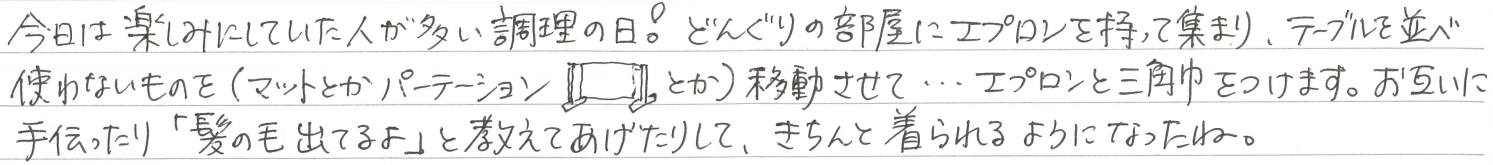 今日は楽しみにしていた人が多い調理の日！どんぐりの部屋にエプロンを持って集まり、テーブルを並べ
使わないものを（マットとかパーテーションとか）移動させて…エプロンと三角巾をつけます。お互いに
手伝ったり「髪の毛出てるよ」と教えてあげたりして、きちんと着られるようになったね。